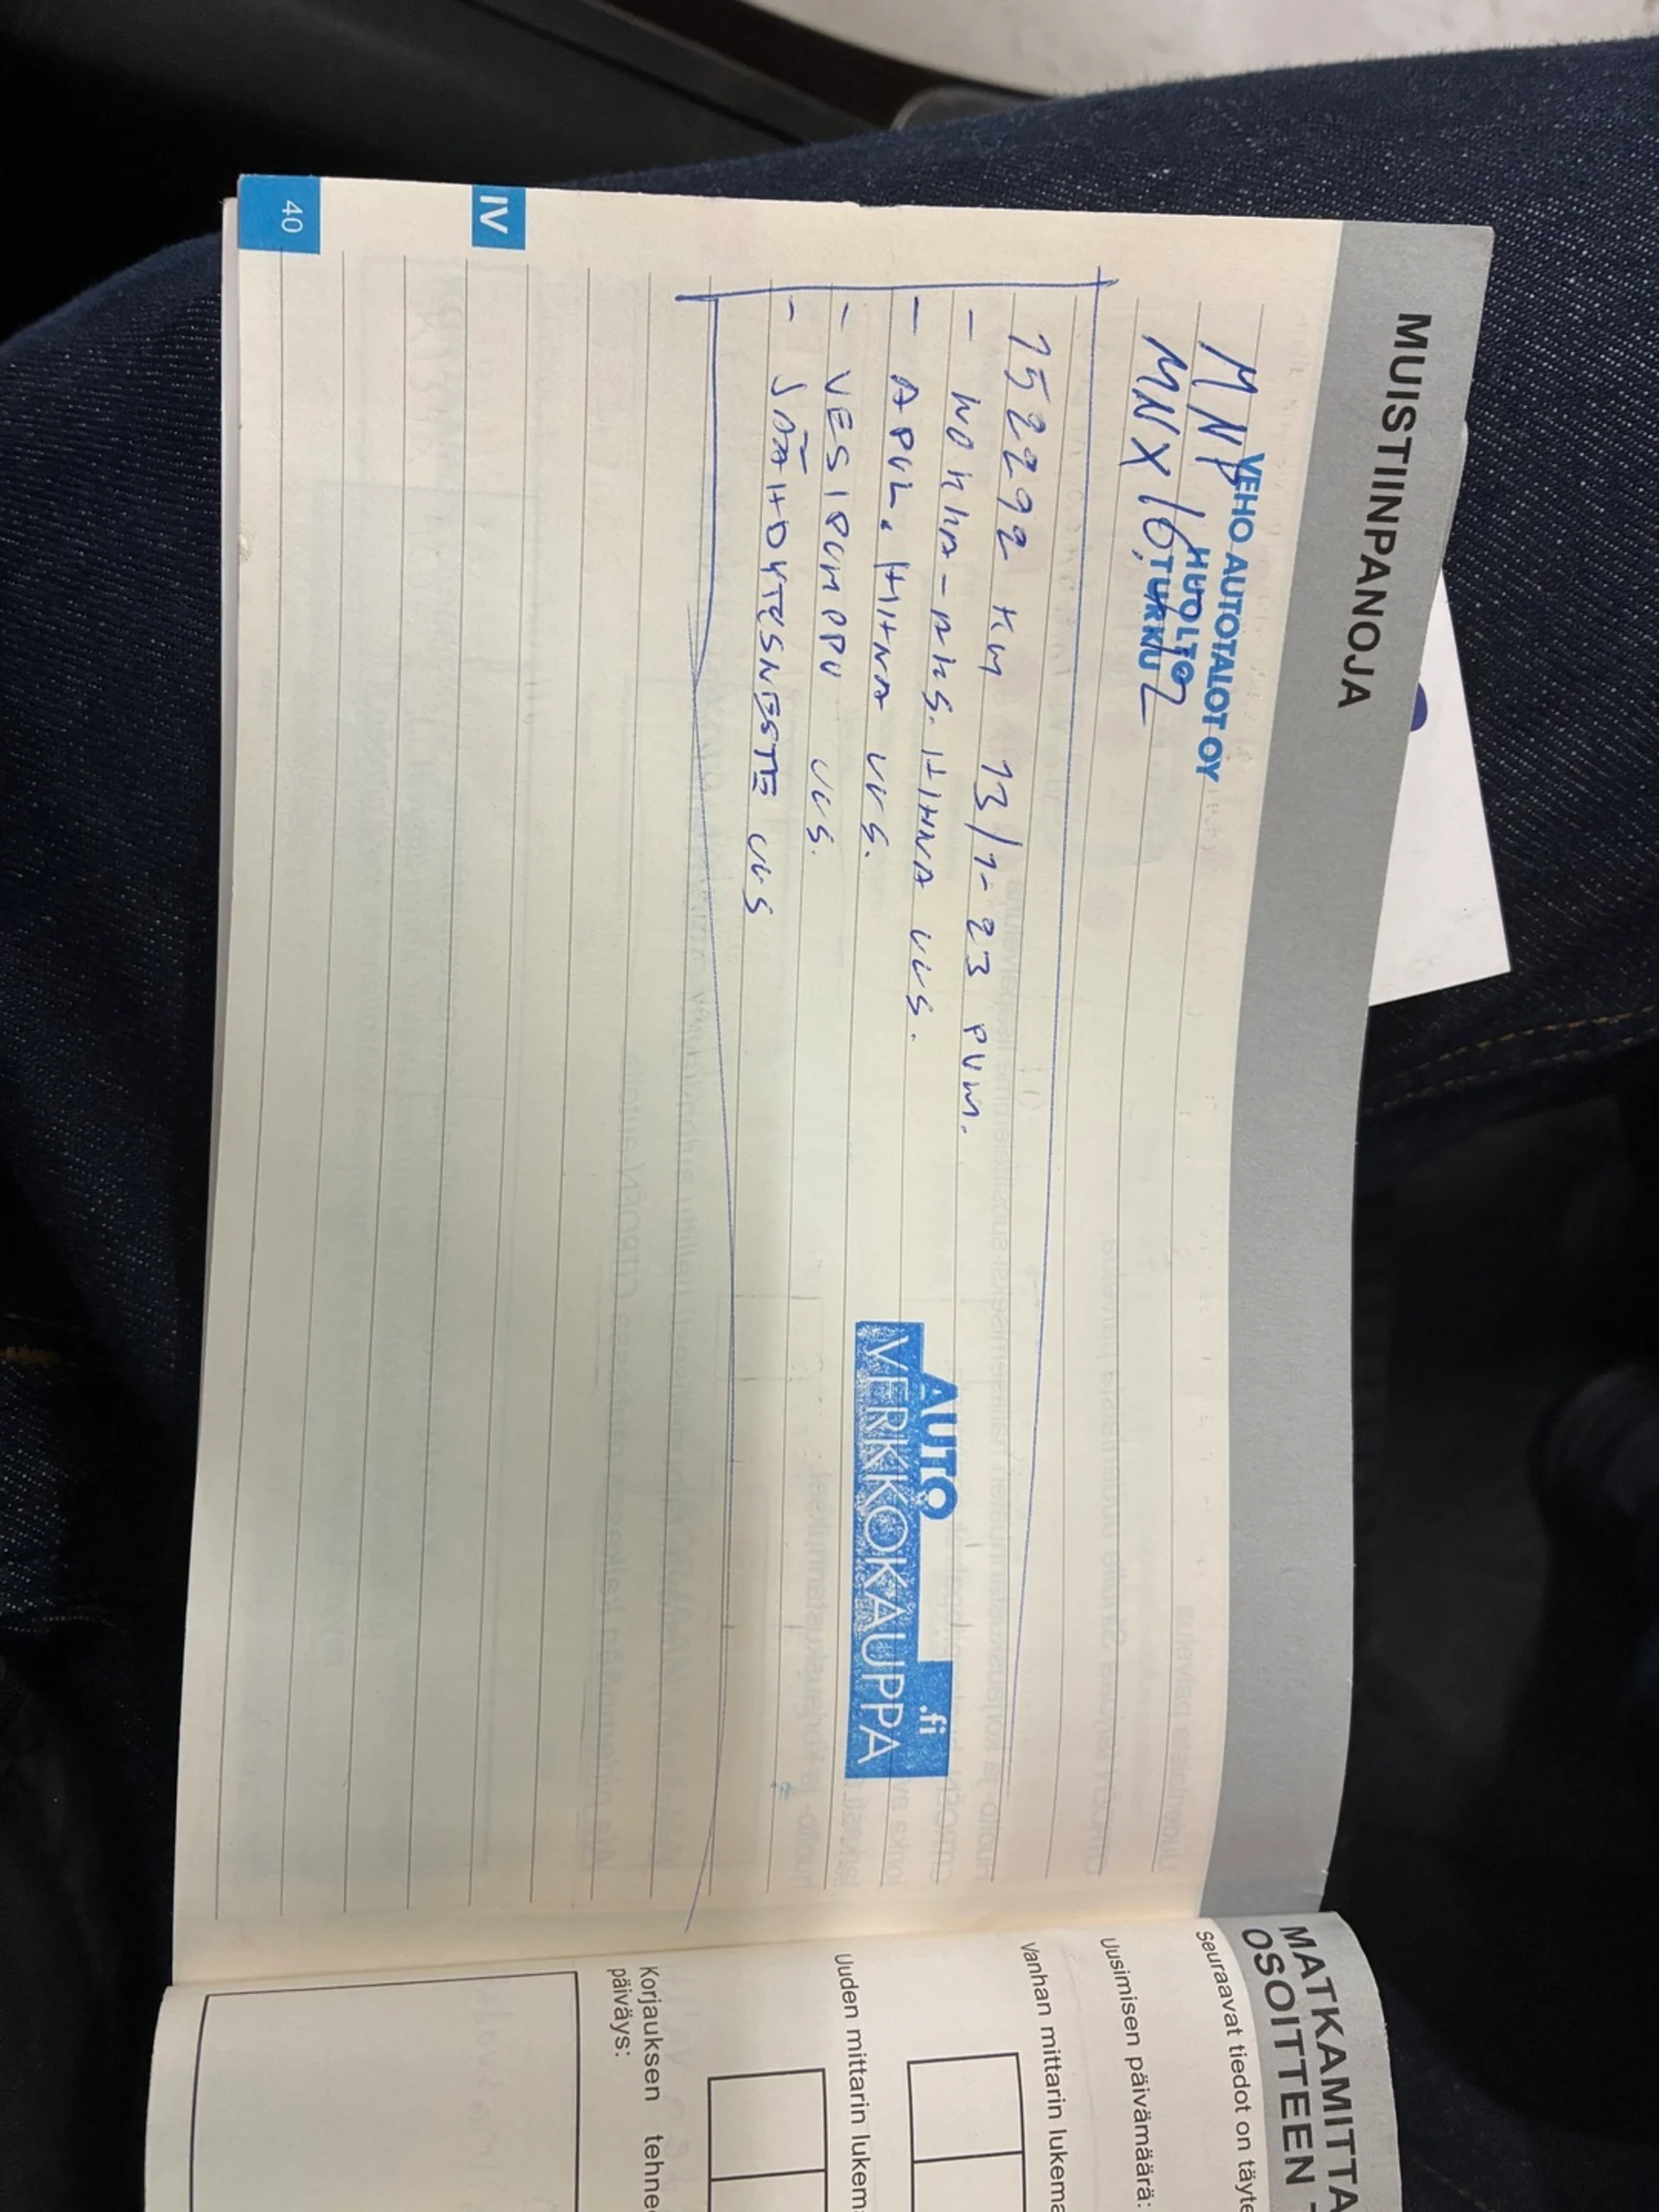 MUISTIINPANOJA
VEHO AUTOTALOT OY
HUOLTO
TURKU
152292 KM 13/1-23 PVM.
- APUL. HIHNA VVS.
- VESIPUMPPU VVS.
- JÄÄHDYTESNESTE VVS
AUTO
VERKKOKAUPPA
.fi
IV
40
MATKAMITTA
OSOITTEEN
Seuraavat tiedot on täyte
Uusimisen päivämäärä:
Vanhan mittarin lukema
Uuden mittarin lukem
Korjauksen tehne
päiväys: